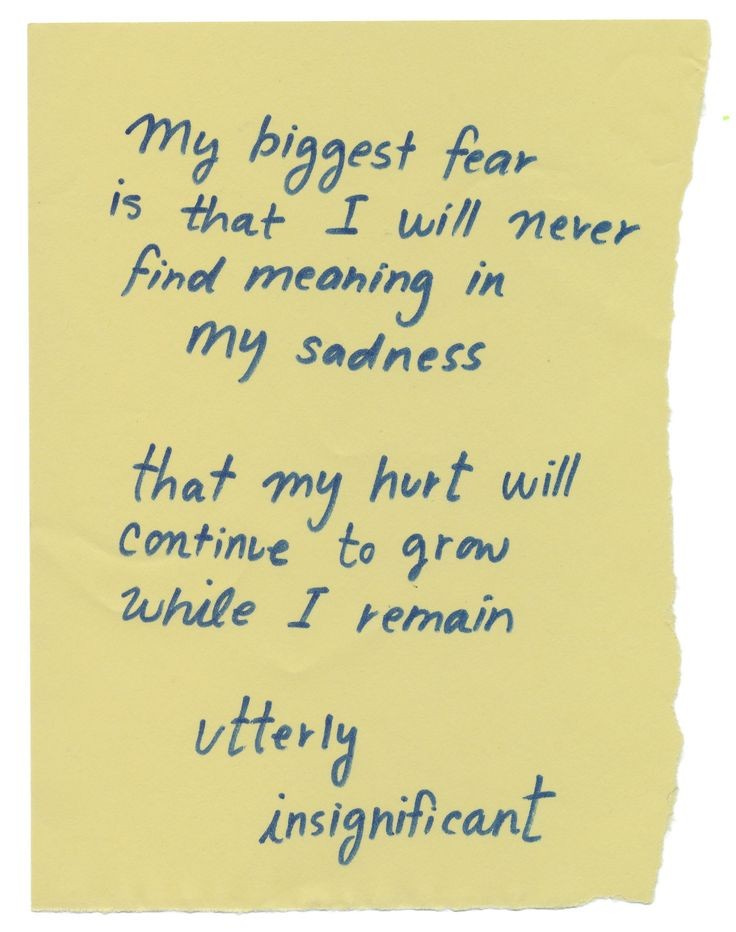 My biggest fear
is that I will never
find meaning in
my sadness
that my hurt will
continue to grow
while I remain
utterly
insignificant